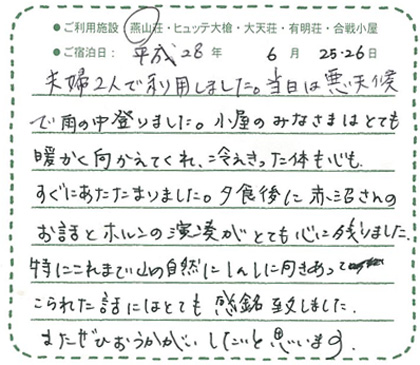 ●ご利用施設 燕山荘・ヒュッテ大槍・大天荘・有明荘・合戦小屋
●ご宿泊日: 平成28年 6月 25-26日
夫婦2人で利用しました。当日は悪天候
で雨の中登りました。小屋のみなさまはとても
暖かく向かえてくれ、冷えきった体も心も
すぐにあたたまりました。夕食後に赤沼さんの
お話とホルンの演奏がとても心に残りました。
特にこれまで山の自然にしんしに向きあって
こられた話にはとても感銘致しました。
またぜひおうかがいしたいと思います。